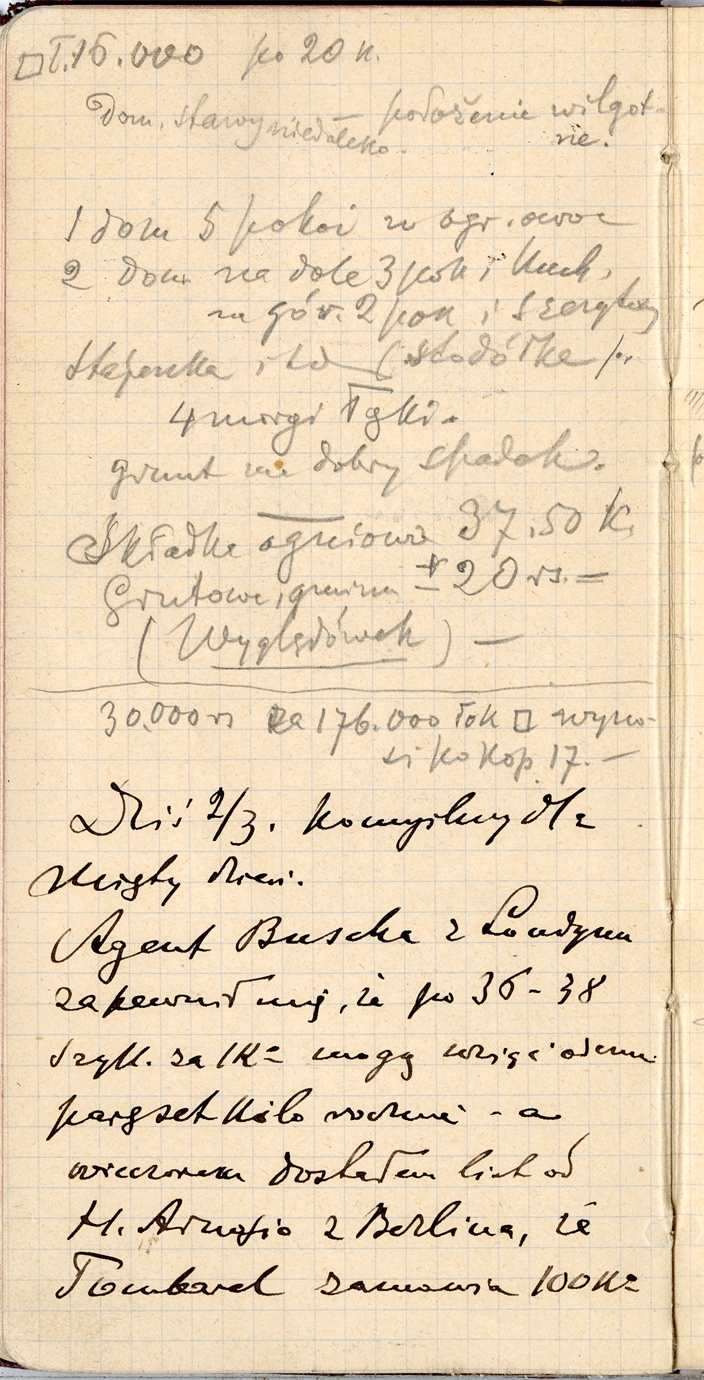 □ ł. 16.000 po 20 k.
Dom, stawy niedaleko. — położenie wilgot-
ne.
1 dom 5 pokoi w ogr. owoc
2 dom na dole 3 pok i kuch.
na gór. 2 pok i
i td (stodółka
4 morgi łąki.
grunt ma dobry spadek.
Składka ogniowa 37.50 K.
Grutowe, gminn ± 20 rs. =
(Wyględówek) —
30.000 rs za 176.000 łok □ wyno-
si po kop 17. —
Dziś 2/3. pomyślny dla
Mięty dzień.
Agent Buscha z Londynu
zapewnił mię, że po 36 - 38
szyl. za 1K= mogę wziąć odemn
paręset kilo rocznie - a
wieczorem dostałem list od
H. z Berlina, że
Tombarel zamawia 100K=